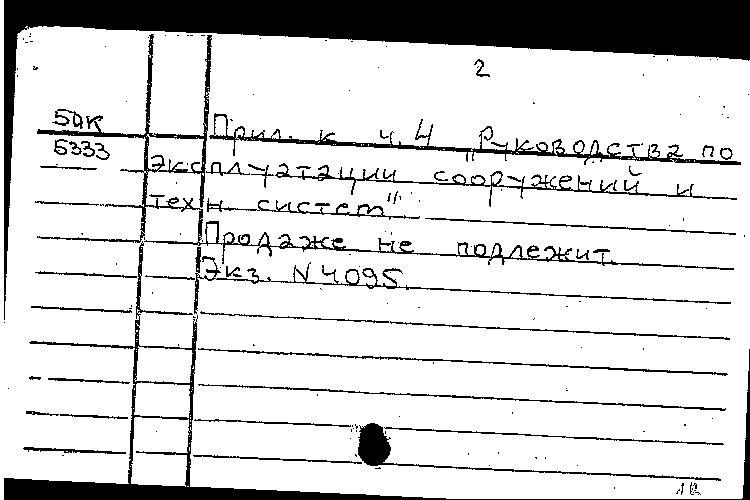 2
5ЦК
5333
Прил. к ч.4 „Руководства по
эксплуатации сооружений и
техн. систем"
Продаже не подлежит.
Экз. N 4095.